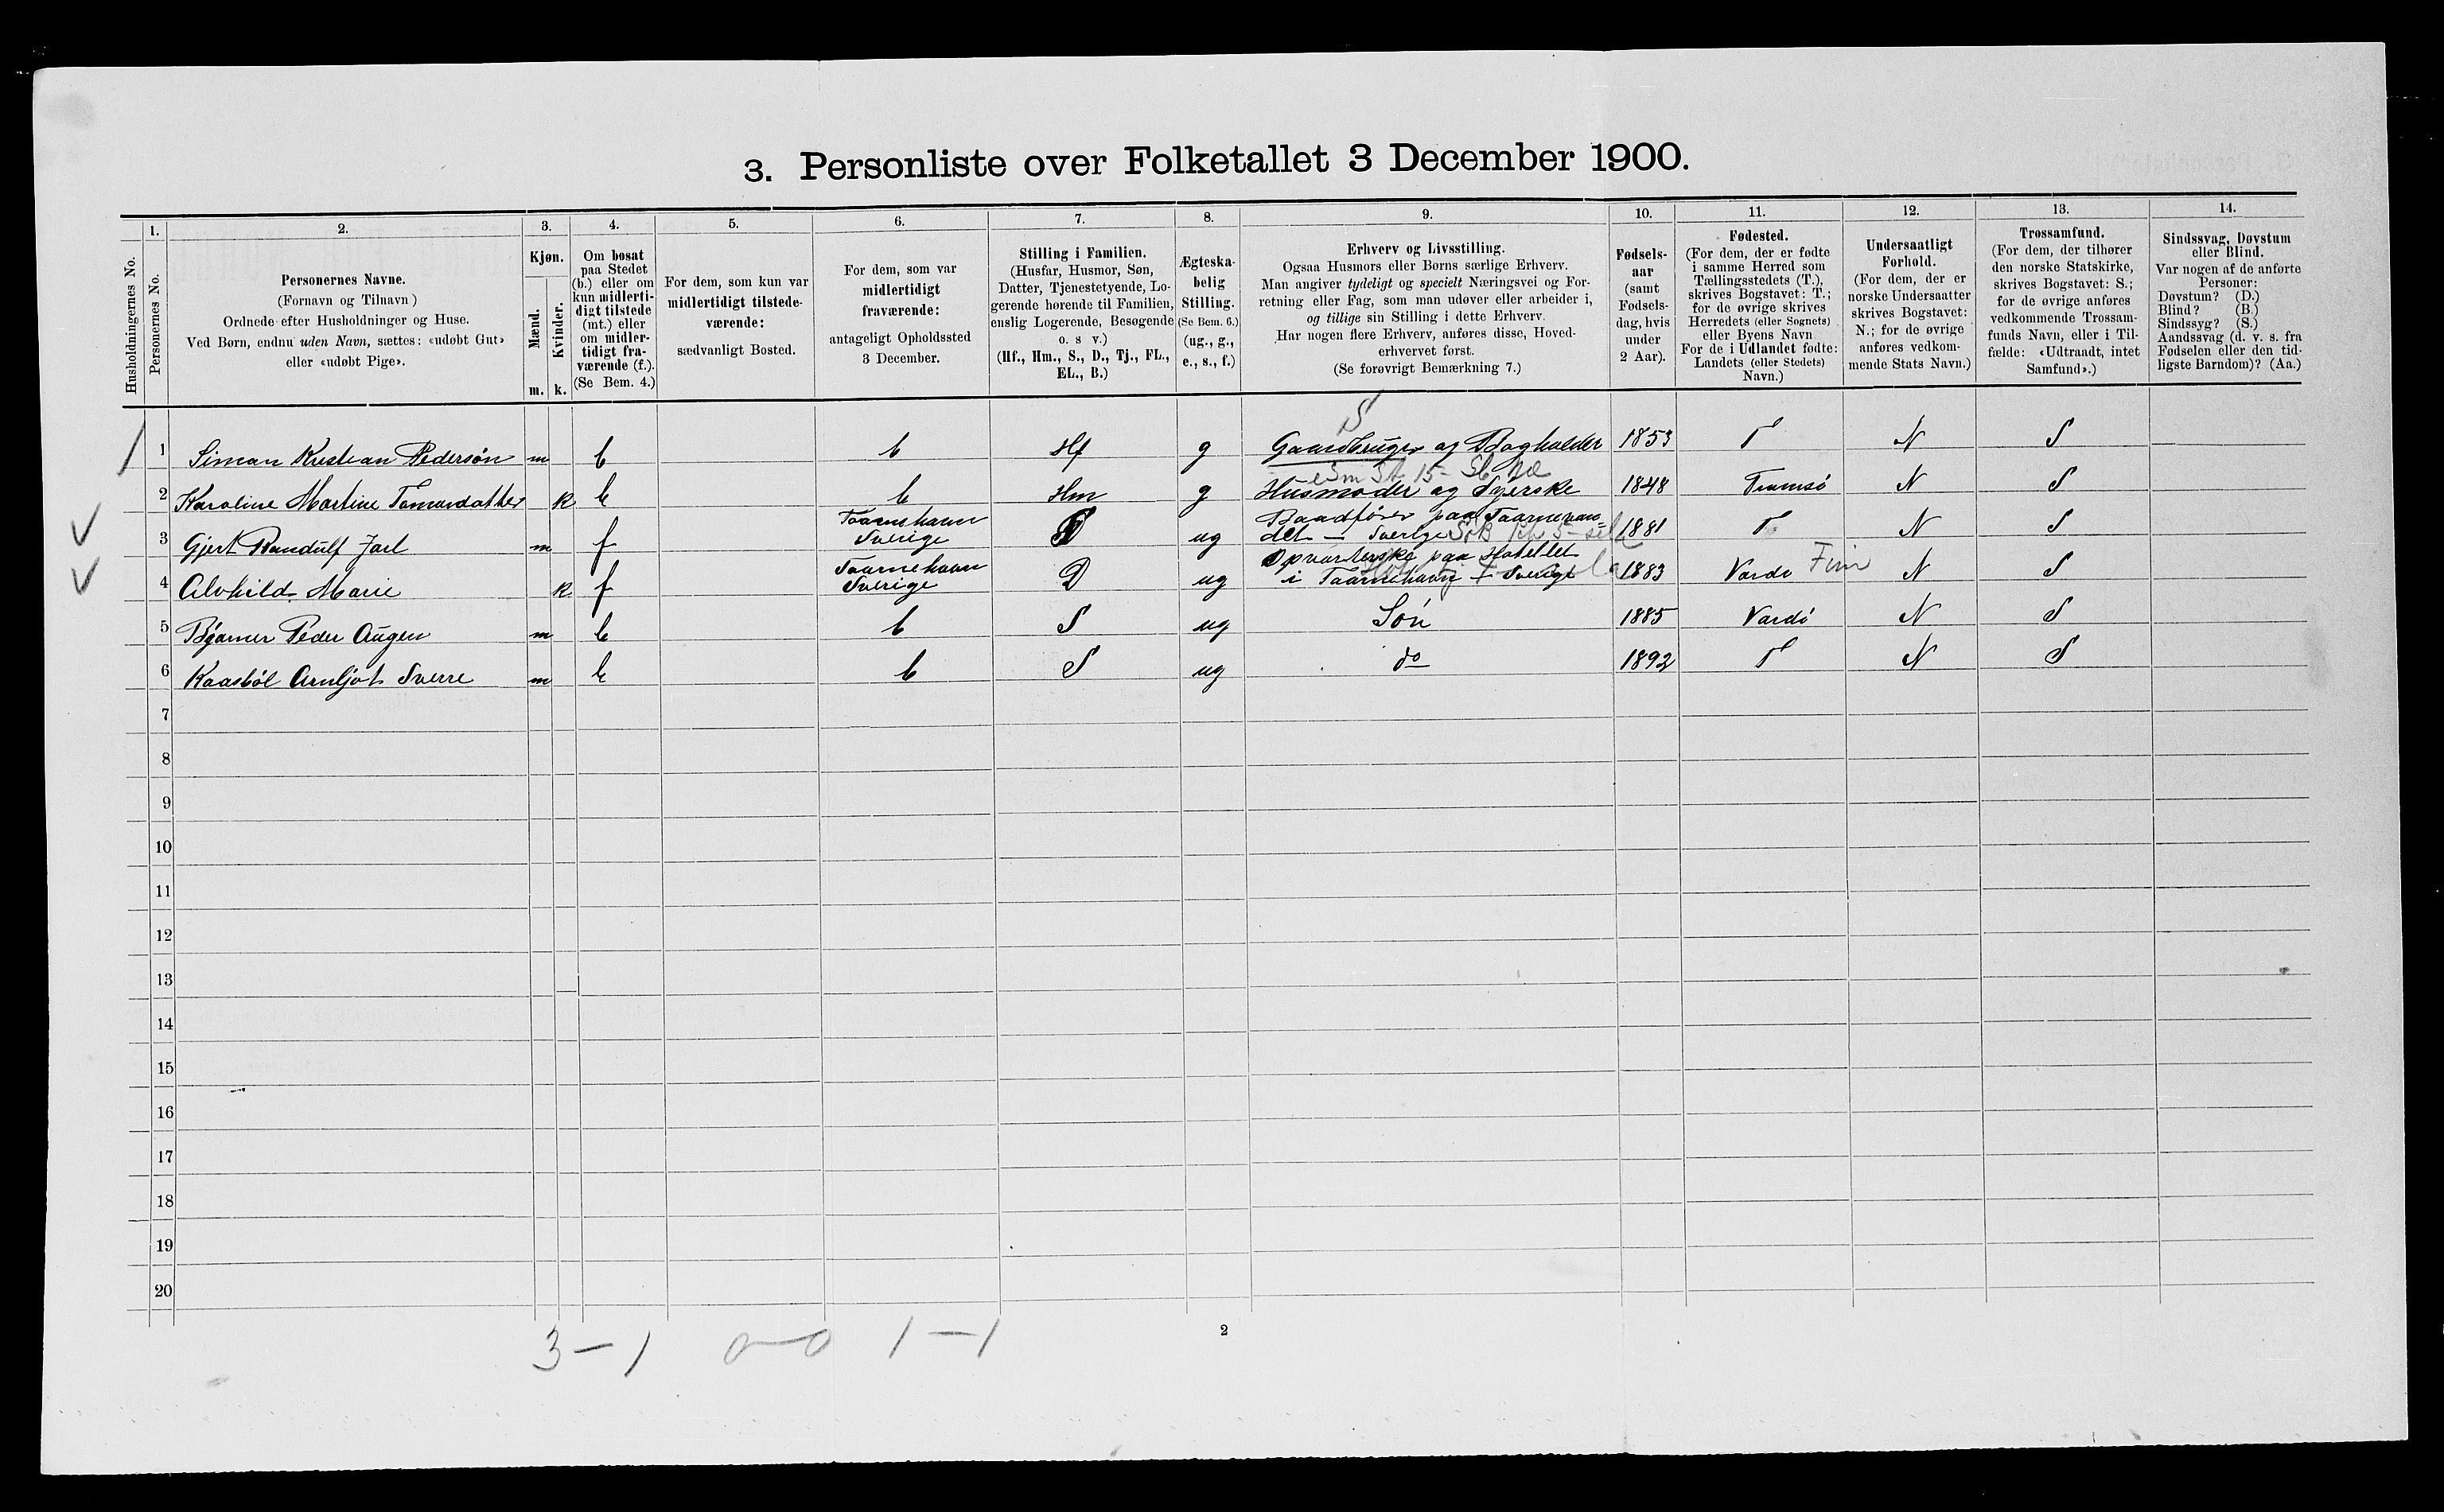 3. Personliste over Folketallet 3 December 1900.
1. 2. 3. 4. 5. 6. 7. 8. 9. 10. 11. 12. 13. 14.
Husholdningernes No.
Personernes No.
Personernes Navne.
(Fornavn og Tilnavn)
Ordnede efter Husholdninger og Huse.
Ved Børn, endnu uden Navn, sættes: «udøbt Gut»
eller «udøbt Pige».
Kjøn.
Mænd.
Kvinder.
m. k.
Om bosat
paa Stedet
(b.) eller om
kun midlerti-
digt tilstede
(mt.) eller
om midler-
tidigt fra-
værende (f.).
(Se Bem. 4.)
For dem, som kun var
midlertidigt tilstede-
værende:
sædvanligt Bosted.
For dem, som var
midlertidigt
fraværende:
antageligt Opholdssted
3 December.
Stilling i Familien.
(Husfar, Husmor, Søn,
Datter, Tjenestetyende, Lo-
gerende hørende til Familien,
enslig Logerende, Besøgende
o. s v.)
(Hf., Hm., S., D., Tj., FL.,
EL., B.)
Ægteska-
belig
Stilling.
(Se Bem. 6.)
(ug., g.,
e., s., f.)
Erhverv og Livsstilling.
Ogsaa Husmors eller Børns særlige Erhverv.
Man angiver tydeligt og specielt Næringsvei og For-
retning eller Fag, som man udøver eller arbeider i,
og tillige sin Stilling i dette Erhverv.
Har nogen flere Erhverv, anføres disse, Hoved-
erhvervet først.
(Se forøvrigt Bemærkning 7.)
Fødsels-
aar
(samt
Fødsels-
dag, hvis
under
2 Aar).
Fødested.
(For dem, der er fødte
i samme Herred som
Tællingsstedets (T.),
skrives Bogstavet: T.;
for de øvrige skrives
Herredets (eller Sognets)
eller Byens Navn
For de i Udlandet fødte:
Landets (eller Stedets)
Navn.)
Undersaatligt
Forhold.
(For dem, der er
norske Undersaatter
skrives Bogstavet:
N.; for de øvrige
anføres vedkom-
mende Stats Navn.)
Trossamfund.
(For dem, der tilhører
den norske Statskirke,
skrives Bogstavet: S.;
for de øvrige anføres
vedkommende Trossam-
funds Navn, eller i Til-
fælde: «Udtraadt, intet
Samfund».)
Sindssvag, Døvstum
eller Blind.
Var nogen af de anførte
Personer:
Døvstum? (D.)
Blind? (B.)
Sindssyg? (S.)
Aandssvag (d. v. s. fra
Fødselen eller den tid-
ligste Barndom)? (Aa.)
S
1 Simon Kristian Pedersøn m b b Hf g Gaardbruger og Bogholder 1853 T N S
2 Karoline Martine k b b Hm g Husmoder og Syerske 1848 Tromsø N S
3 Gjert Randulf Jarl m f Taarnehavn Sverige ug Baadfører paa 1881 T N S
4 Alvhild Marie k f Taarnehavn Sverige D ug Opvarterske paa Hotellet i Taarnehavn i Sverige 1883 Vardø Finm N S
5 Bjarner Peder Augen m b b S ug Søn 1885 Vardø N S
6 Kaasbøl Arnljot Sverre m b b S ug do 1892 T N S
7
8
9
10
11
12
13
14
15
16
17
18
19
20
3 - 1 0-0 1-1
2